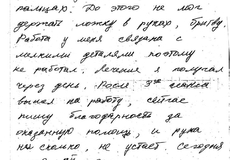 пальцах. До этого не мог
держать ложку в руках, бритву.
Работа у меня связана с
мелкими деталями поэтому
не работал. Лечение я получал
через день. После 3го сеанса
вышел на работу, сейчас
пишу благодарность за
оказанную помощь, и рука
ни сколько, не устает. Сегодня